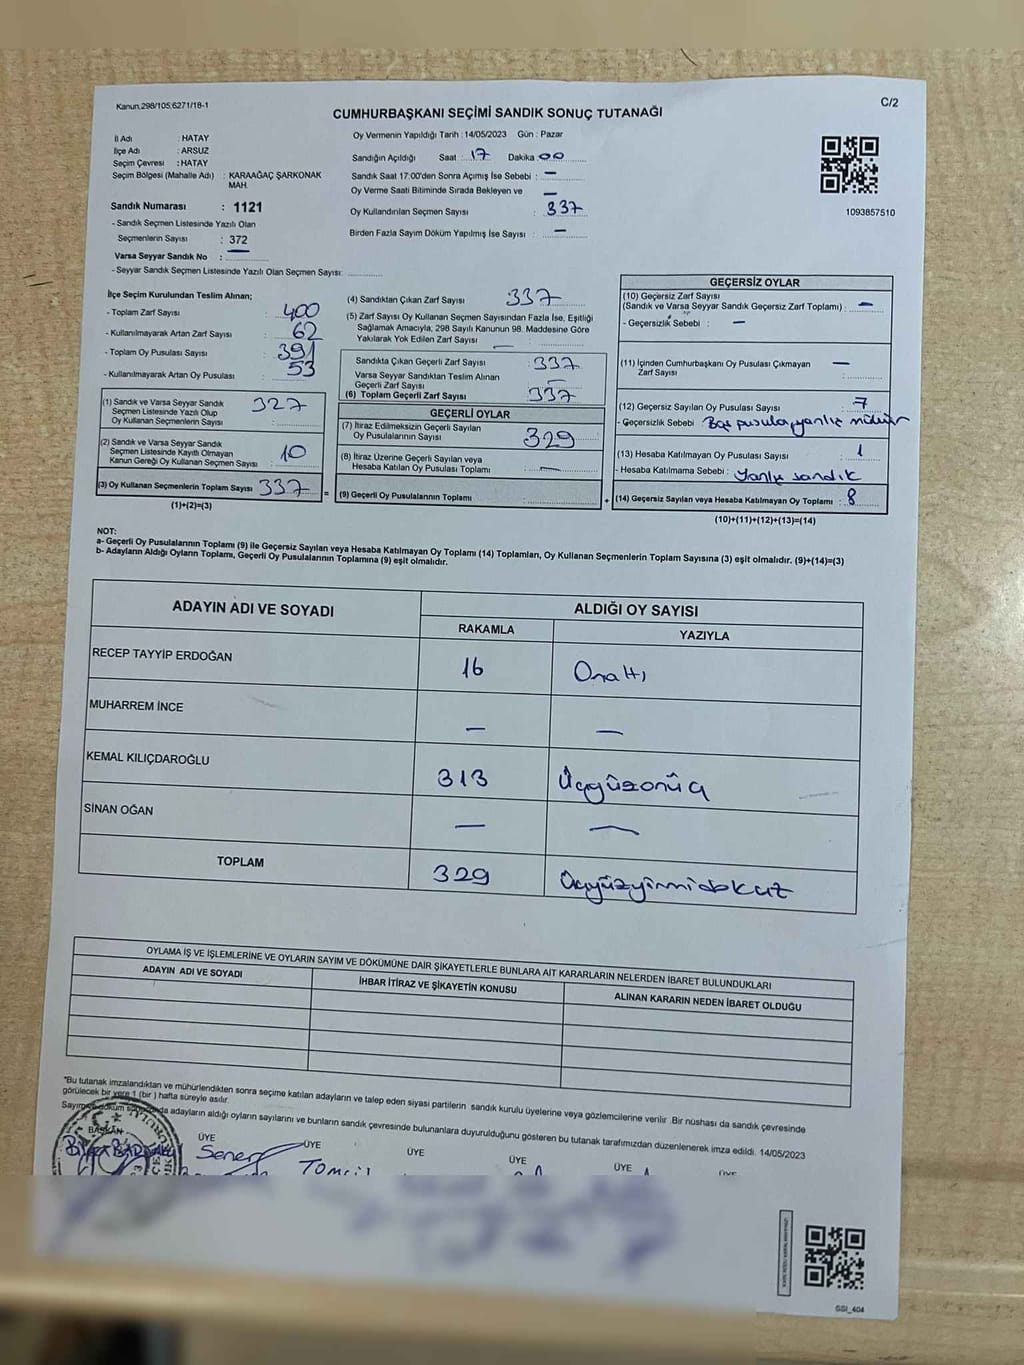 Kanun:298/105;6271/18-1
C/2
CUMHURBAŞKANI SEÇİMİ SANDIK SONUÇ TUTANAĞI
İl Adı : HATAY
İlçe Adı : ARSUZ
Seçim Çevresi : HATAY
Seçim Bölgesi (Mahalle Adı) : KARAAĞAÇ ŞARKONAK MAH.
Sandık Numarası : 1121
- Sandık Seçmen Listesinde Yazılı Olan
Seçmenlerin Sayısı : 372
Varsa Seyyar Sandık No : —
- Seyyar Sandık Seçmen Listesinde Yazılı Olan Seçmen Sayısı:
Oy Vermenin Yapıldığı Tarih :14/05/2023 Gün : Pazar
Sandığın Açıldığı Saat : 17 Dakika 00
Sandık Saat 17:00'den Sonra Açımış İse Sebebi : —
Oy Verme Saati Bitiminde Sırada Bekleyen ve —
Oy Kullandırılan Seçmen Sayısı : 337
Birden Fazla Sayım Döküm Yapılmış İse Sayısı : —
1093857510
İlçe Seçim Kurulundan Teslim Alınan;
- Toplam Zarf Sayısı : 400
- Kullanılmayarak Artan Zarf Sayısı : 62
- Toplam Oy Pusulası Sayısı : 391
- Kullanılmayarak Artan Oy Pusulası : 53
(1) Sandık ve Varsa Seyyar Sandık
Seçmen Listesinde Yazılı Olup
Oy Kullanan Seçmenlerin Sayısı : 327
(2) Sandık ve Varsa Seyyar Sandık
Seçmen Listesinde Kayıtlı Olmayan
Kanun Gereği Oy Kullanan Seçmen Sayısı : 10
(3) Oy Kullanan Seçmenlerin Toplam Sayısı : 337
(1)+(2)=(3)
(4) Sandıktan Çıkan Zarf Sayısı : 337
(5) Zarf Sayısı Oy Kullanan Seçmen Sayısından Fazla İse, Eşitliği
Sağlamak Amacıyla; 298 Sayılı Kanunun 98. Maddesine Göre
Yakılarak Yok Edilen Zarf Sayısı : —
Sandıkta Çıkan Geçerli Zarf Sayısı : 337
Varsa Seyyar Sandıktan Teslim Alınan
Geçerli Zarf Sayısı : —
(6) Toplam Geçerli Zarf Sayısı : 337
GEÇERLİ OYLAR
(7) İtiraz Edilmeksizin Geçerli Sayılan
Oy Pusulalarının Sayısı : 329
(8) İtiraz Üzerine Geçerli Sayılan veya
Hesaba Katılan Oy Pusulası Toplamı : —
= (9) Geçerli Oy Pusulalarının Toplamı : +
GEÇERSİZ OYLAR
(10) Geçersiz Zarf Sayısı
(Sandık ve Varsa Seyyar Sandık Geçersiz Zarf Toplamı) : —
- Geçersizlik Sebebi : —
(11) İçinden Cumhurbaşkanı Oy Pusulası Çıkmayan —
Zarf Sayısı :
(12) Geçersiz Sayılan Oy Pusulası Sayısı : 7
- Geçersizlik Sebebi : Boş pusula, yanlış mühür
(13) Hesaba Katılmayan Oy Pusulası Sayısı : 1
- Hesaba Katılmama Sebebi : Yanlış sandık
(14) Geçersiz Sayılan veya Hesaba Katılmayan Oy Toplamı : 8
(10)+(11)+(12)+(13)=(14)
NOT:
a- Geçerli Oy Pusulalarının Toplamı (9) ile Geçersiz Sayılan veya Hesaba Katılmayan Oy Toplamı (14) Toplamları, Oy Kullanan Seçmenlerin Toplam Sayısına (3) eşit olmalıdır. (9)+(14)=(3)
b- Adayların Aldığı Oyların Toplamı, Geçerli Oy Pusulalarının Toplamına (9) eşit olmalıdır.
ADAYIN ADI VE SOYADI ALDIĞI OY SAYISI
RAKAMLA YAZIYLA
RECEP TAYYİP ERDOĞAN 16 Onaltı
MUHARREM İNCE — —
KEMAL KILIÇDAROĞLU 313 Üçyüzonüç
SİNAN OĞAN — —
TOPLAM 329 Üçyüzyirmidokuz
OYLAMA İŞ VE İŞLEMLERİNE VE OYLARIN SAYIM VE DÖKÜMÜNE DAİR ŞİKAYETLERLE BUNLARA AİT KARARLARIN NELERDEN İBARET BULUNDUKLARI
ADAYIN ADI VE SOYADI İHBAR İTİRAZ VE ŞİKAYETİN KONUSU ALINAN KARARIN NEDEN İBARET OLDUĞU
*Bu tutanak imzalandıktan ve mühürlendikten sonra seçime katılan adayların ve talep eden siyasi partilerin sandık kurulu üyelerine veya gözlemcilerine verilir. Bir nüshası da sandık çevresinde
görülecek bir yere 1 (bir) hafta süreyle asılır.
Sayım ve döküm adayların aldığı oyların sayılarını ve bunların sandık çevresinde bulunanlara duyurulduğunu gösteren bu tutanak tarafımızdan düzenlenerek imza edildi. 14/05/2023
BAŞKAN ÜYE ÜYE ÜYE ÜYE ÜYE ÜYE
Sener
GSI_404